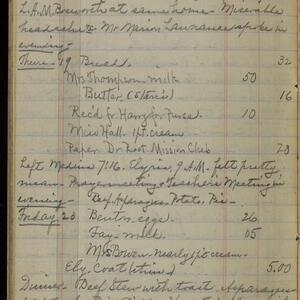 L. A. M. Bosworth at same home - Miserable
headache - Mr Marion Lawrance spoke in
evening -
Thurs - 19 Bread. 32
Mrs Thompson milk 50
Butter (Clara's) 16
Rec'd for Harry for fuse. 10
Miss Hall 1pt. cream
Paper Dr Root Mission Club 20
Left Medina 7:16. Elyria 9 A.M. felt pretty
mean. Prayermeeting & Teachers Meeting in
evening - Beef Asparagus - Potato, Pie -
Friday 20 Benton eggs 26
Fay - milk 05
Mrs Bowen - nearly 1pt. cream -
Ely, Coat 5.00
Dinner - Beef Stew with toast Asparagus